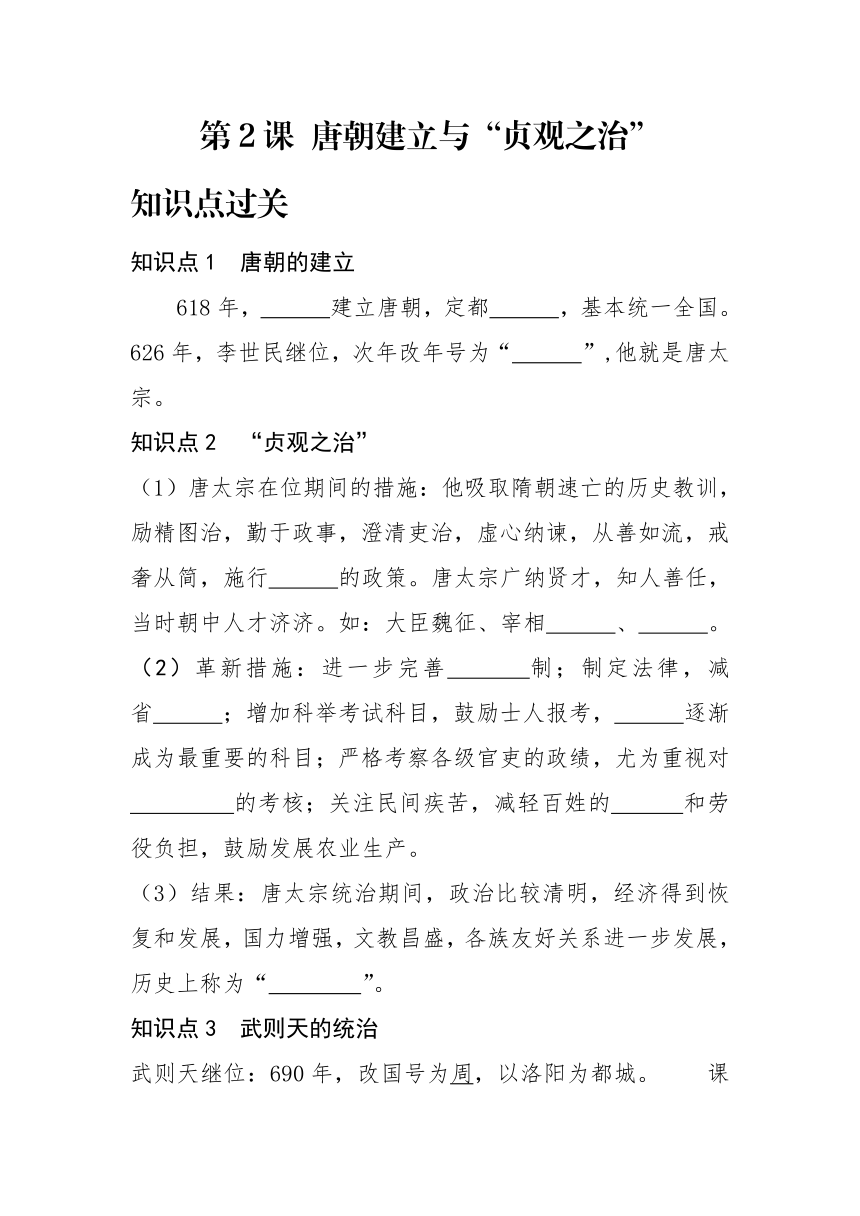 第2课 唐朝建立与“贞观之治”
知识点过关
知识点1 唐朝的建立
618年，______建立唐朝，定都______，基本统一全国。
626年，李世民继位，次年改年号为“______”,他就是唐太
宗。
知识点2 “贞观之治”
（1）唐太宗在位期间的措施：他吸取隋朝速亡的历史教训，
励精图治，勤于政事，澄清吏治，虚心纳谏，从善如流，戒
奢从简，施行______的政策。唐太宗广纳贤才，知人善任，
当时朝中人才济济。如：大臣魏征、宰相______、______。
（2）革新措施：进一步完善_______制；制定法律，减
省______；增加科举考试科目，鼓励士人报考，______逐渐
成为最重要的科目；严格考察各级官吏的政绩，尤为重视对
_________的考核；关注民间疾苦，减轻百姓的______和劳
役负担，鼓励发展农业生产。
（3）结果：唐太宗统治期间，政治比较清明，经济得到恢
复和发展，国力增强，文教昌盛，各族友好关系进一步发展，
历史上称为“________”。
知识点3 武则天的统治
武则天继位：690年，改国号为周，以洛阳为都城。 课